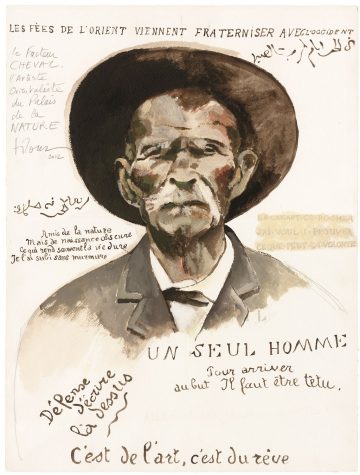 LES FÉES DE L'ORIENT VIENNENT FRATERNISER AVEC L'OCCIDENT
Le Facteur
CHEVAL
l'artiste
Orientaliste
du Palais
de la
NATURE
2012
Amis de la nature
Mais de naissance obscure
Ce qui rend souvent la vie dure
Je l'ai subi sans murmure
UN SEUL HOMME
Pour arriver
au but Il faut être têtu.
Défense
d'écrire
là dessus
C'est de l'art, c'est du rêve